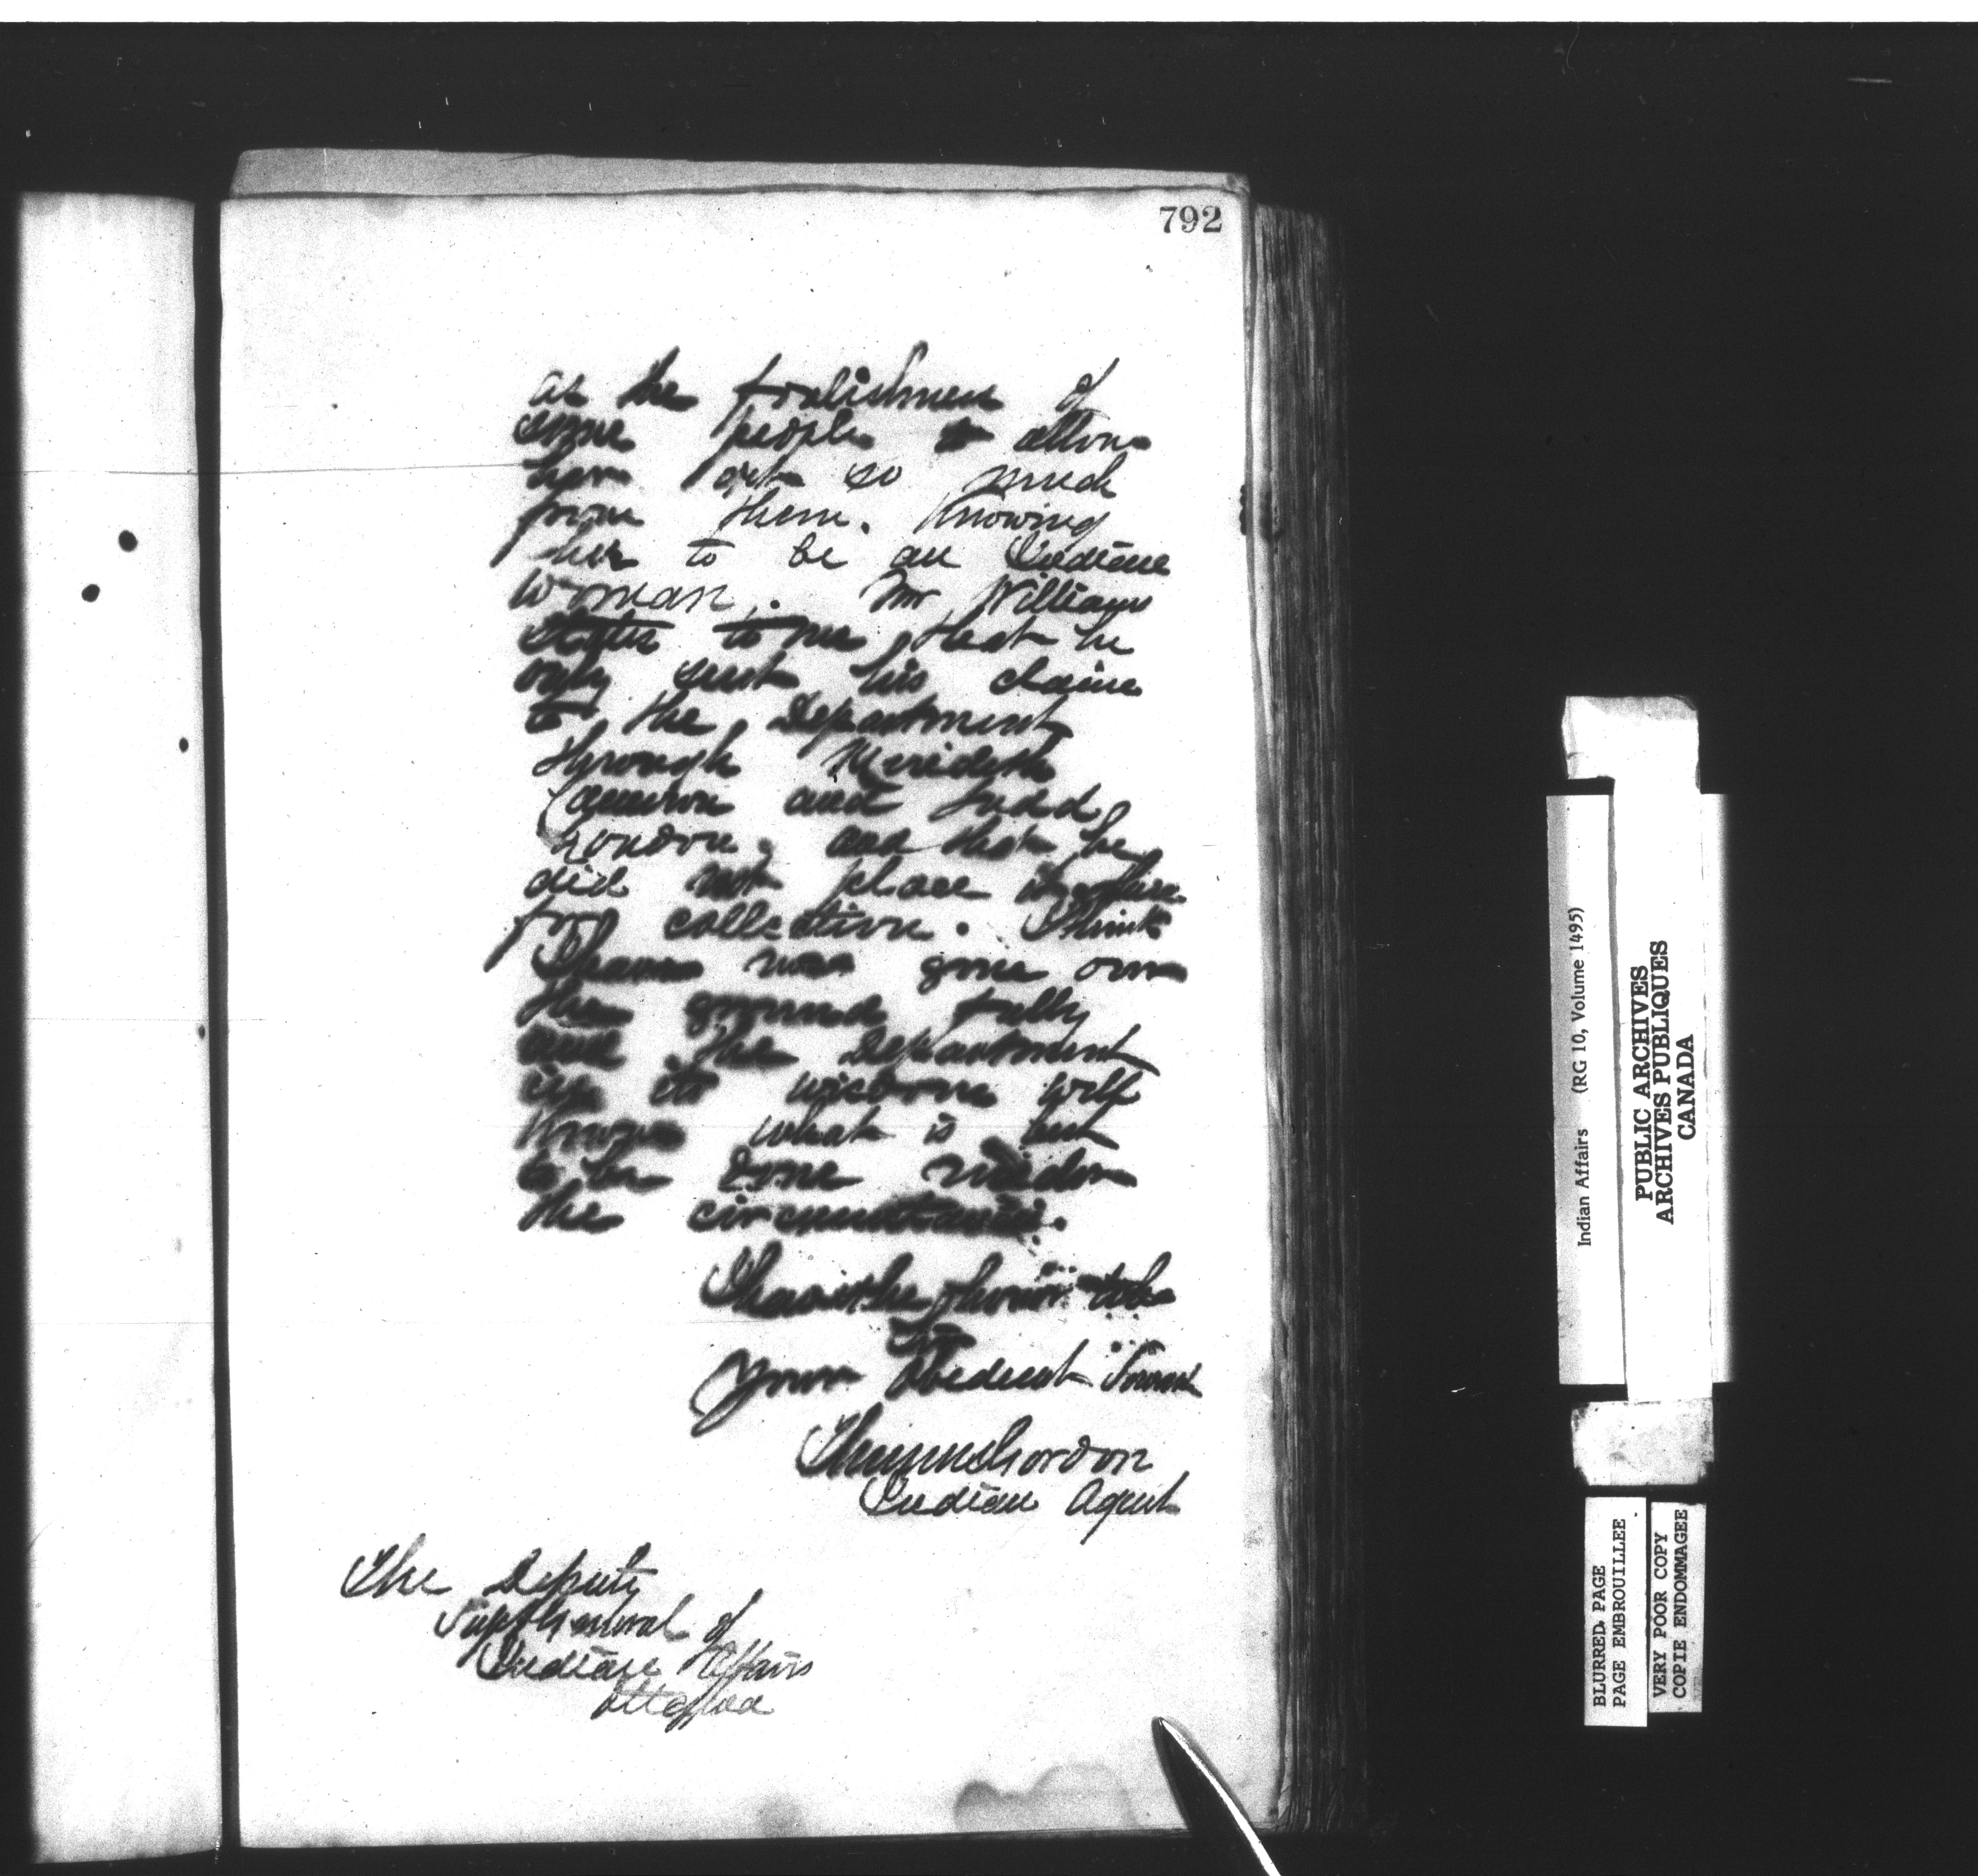 792
at the foolishness of
some people to allow
her get so much
from them. Knowing
her to be an Indian
Woman. Mr Williams
states to me that he
only sent his claim
to the Department
through Meridith
Cameron and Judd
London, and that he
did not place it
for collection. I think
I have now gone over
the ground fully
and the Department
in its wisdom will
know what is best
to be done under
the circumstances.
I have the honor to be
Sir
Your Obedient Servant
Gordon
Indian Agent
The Deputy
Supt General of
Indian Affairs
Ottawa
Indian Affairs (RG 10, Volume 1495)
PUBLIC ARCHIVES
ARCHIVES PUBLIQUES
CANADA
BLURRED PAGE
PAGE EMBROUILLEE
VERY POOR COPY
COPIE ENDOMMAGEE